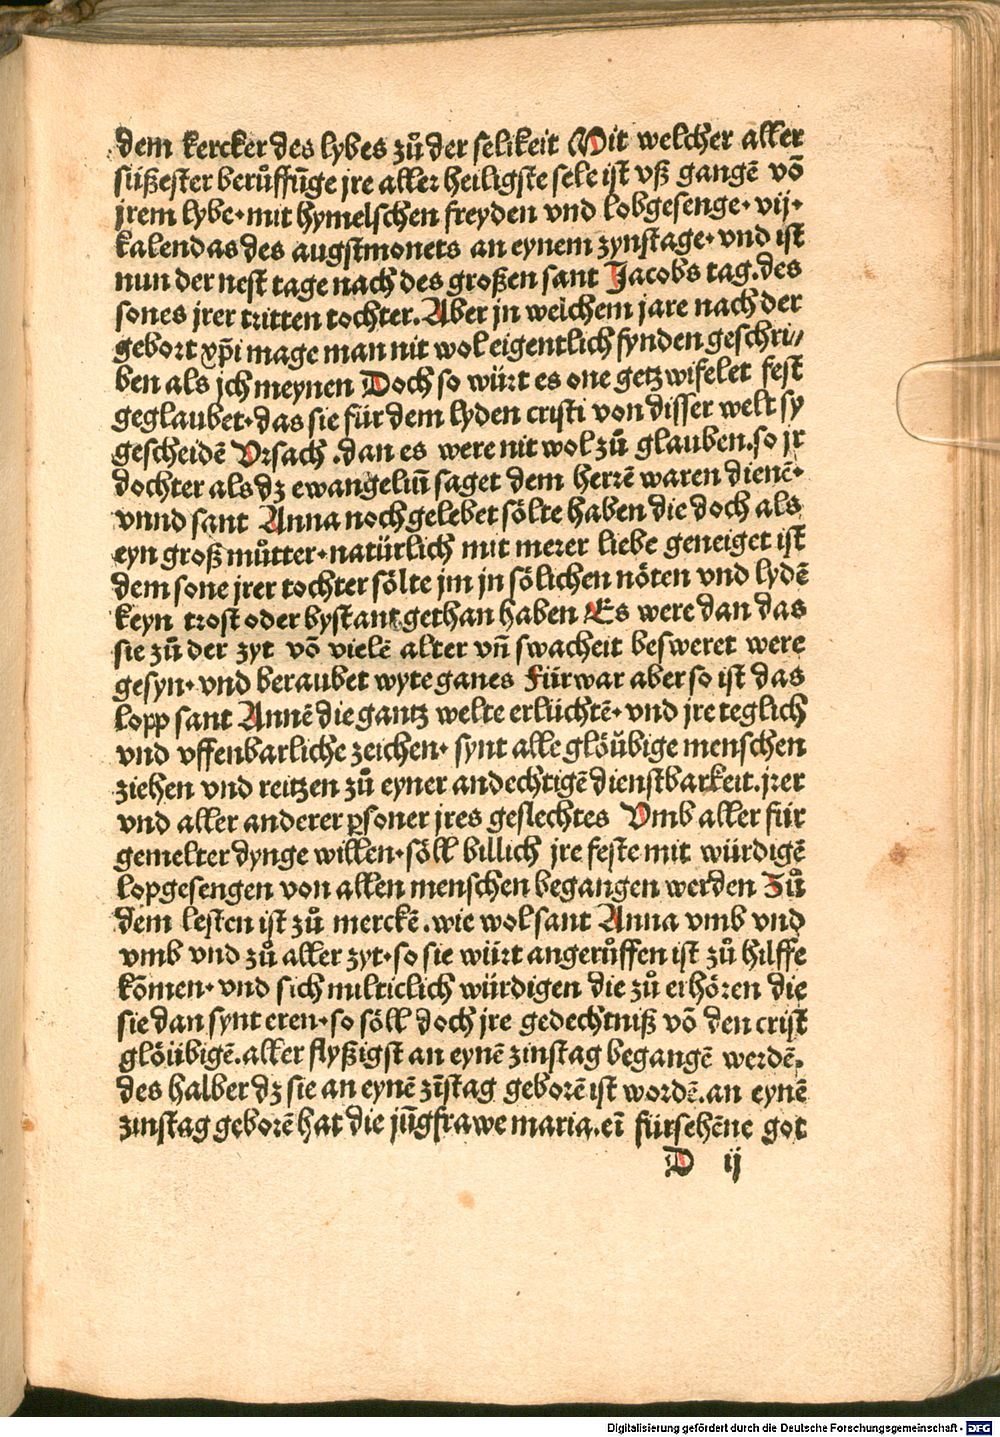 dem kercker des lybes zuͦ der selikeit Mit welcher aller
süßester beruͦffūge jre aller heiligste sele ist vß gangē võ
jrem lybe· mit hymelschen freyden vnd lobgesenge· vij·
kalendas des augstmonets an eynem zynstage· vnd ist
nun der nest tage nach des großen sant Jacobs tag. des
sones jrer tritten tochter. Aber jn welchem jare nach der
gebort xp̄i mage man nit wol eigentlich fynden geschri//
ben als jch meynen Doch so würt es one getzwifelet fest
geglaubet· das sie für dem lyden cristi von disser welt sy
gescheidē Vrsach .dan es were nit wol zuͦ glauben. so jr
dochter als dz ewangeliū saget dem herrē waren dienē·
vnnd sant Anna noch gelebet sölte haben die doch als
eyn groß muͦtter· natürlich mit merer liebe geneiget ist
dem sone jrer tochter sölte jm jn sölichen nöten vnd lydē
keyn trost oder bystant gethan haben Es were dan das
sie zuͦ der zyt võ vielē alter vn̄ swacheit besweret were
gesyn· vnd beraubet wyte ganes Fürwar aber so ist das
lopp sant Annē die gantz welte erlüchtē· vnd jre teglich
vnd vffenbarliche zeichen· synt alle glöübige menschen
ziehen vnd reitzen zuͦ eyner andechtigē dienstbarkeit. jrer
vnd aller anderer ꝑsoner jres geslechtes Vmb aller für
gemelter dynge willen· söll billich jre feste mit würdigē
lopgesengen von allen menschen begangen werden Zuͦ
dem lesten ist zuͦ merckē. wie wol sant Anna vmb vnd
vmb vnd zuͦ aller zyt· so sie würt angeruͦffen ist zuͦ hilffe
kōmen· vnd sich milticlich würdigen die zuͦ erhören die
sie dan synt eren· so söll doch jre gedechtniß võ den crist
glöübigē. aller flyßigst an eynē zinstag begangē werdē.
des halber dz sie an eynē zīstag geborē ist wordē. an eynē
zinstag geborē hat die jūgfrawe maria. eī fürsehēne got
D ij
Digitalisierung gefördert durch die Deutsche Forschungsgemeinschaft - DFG